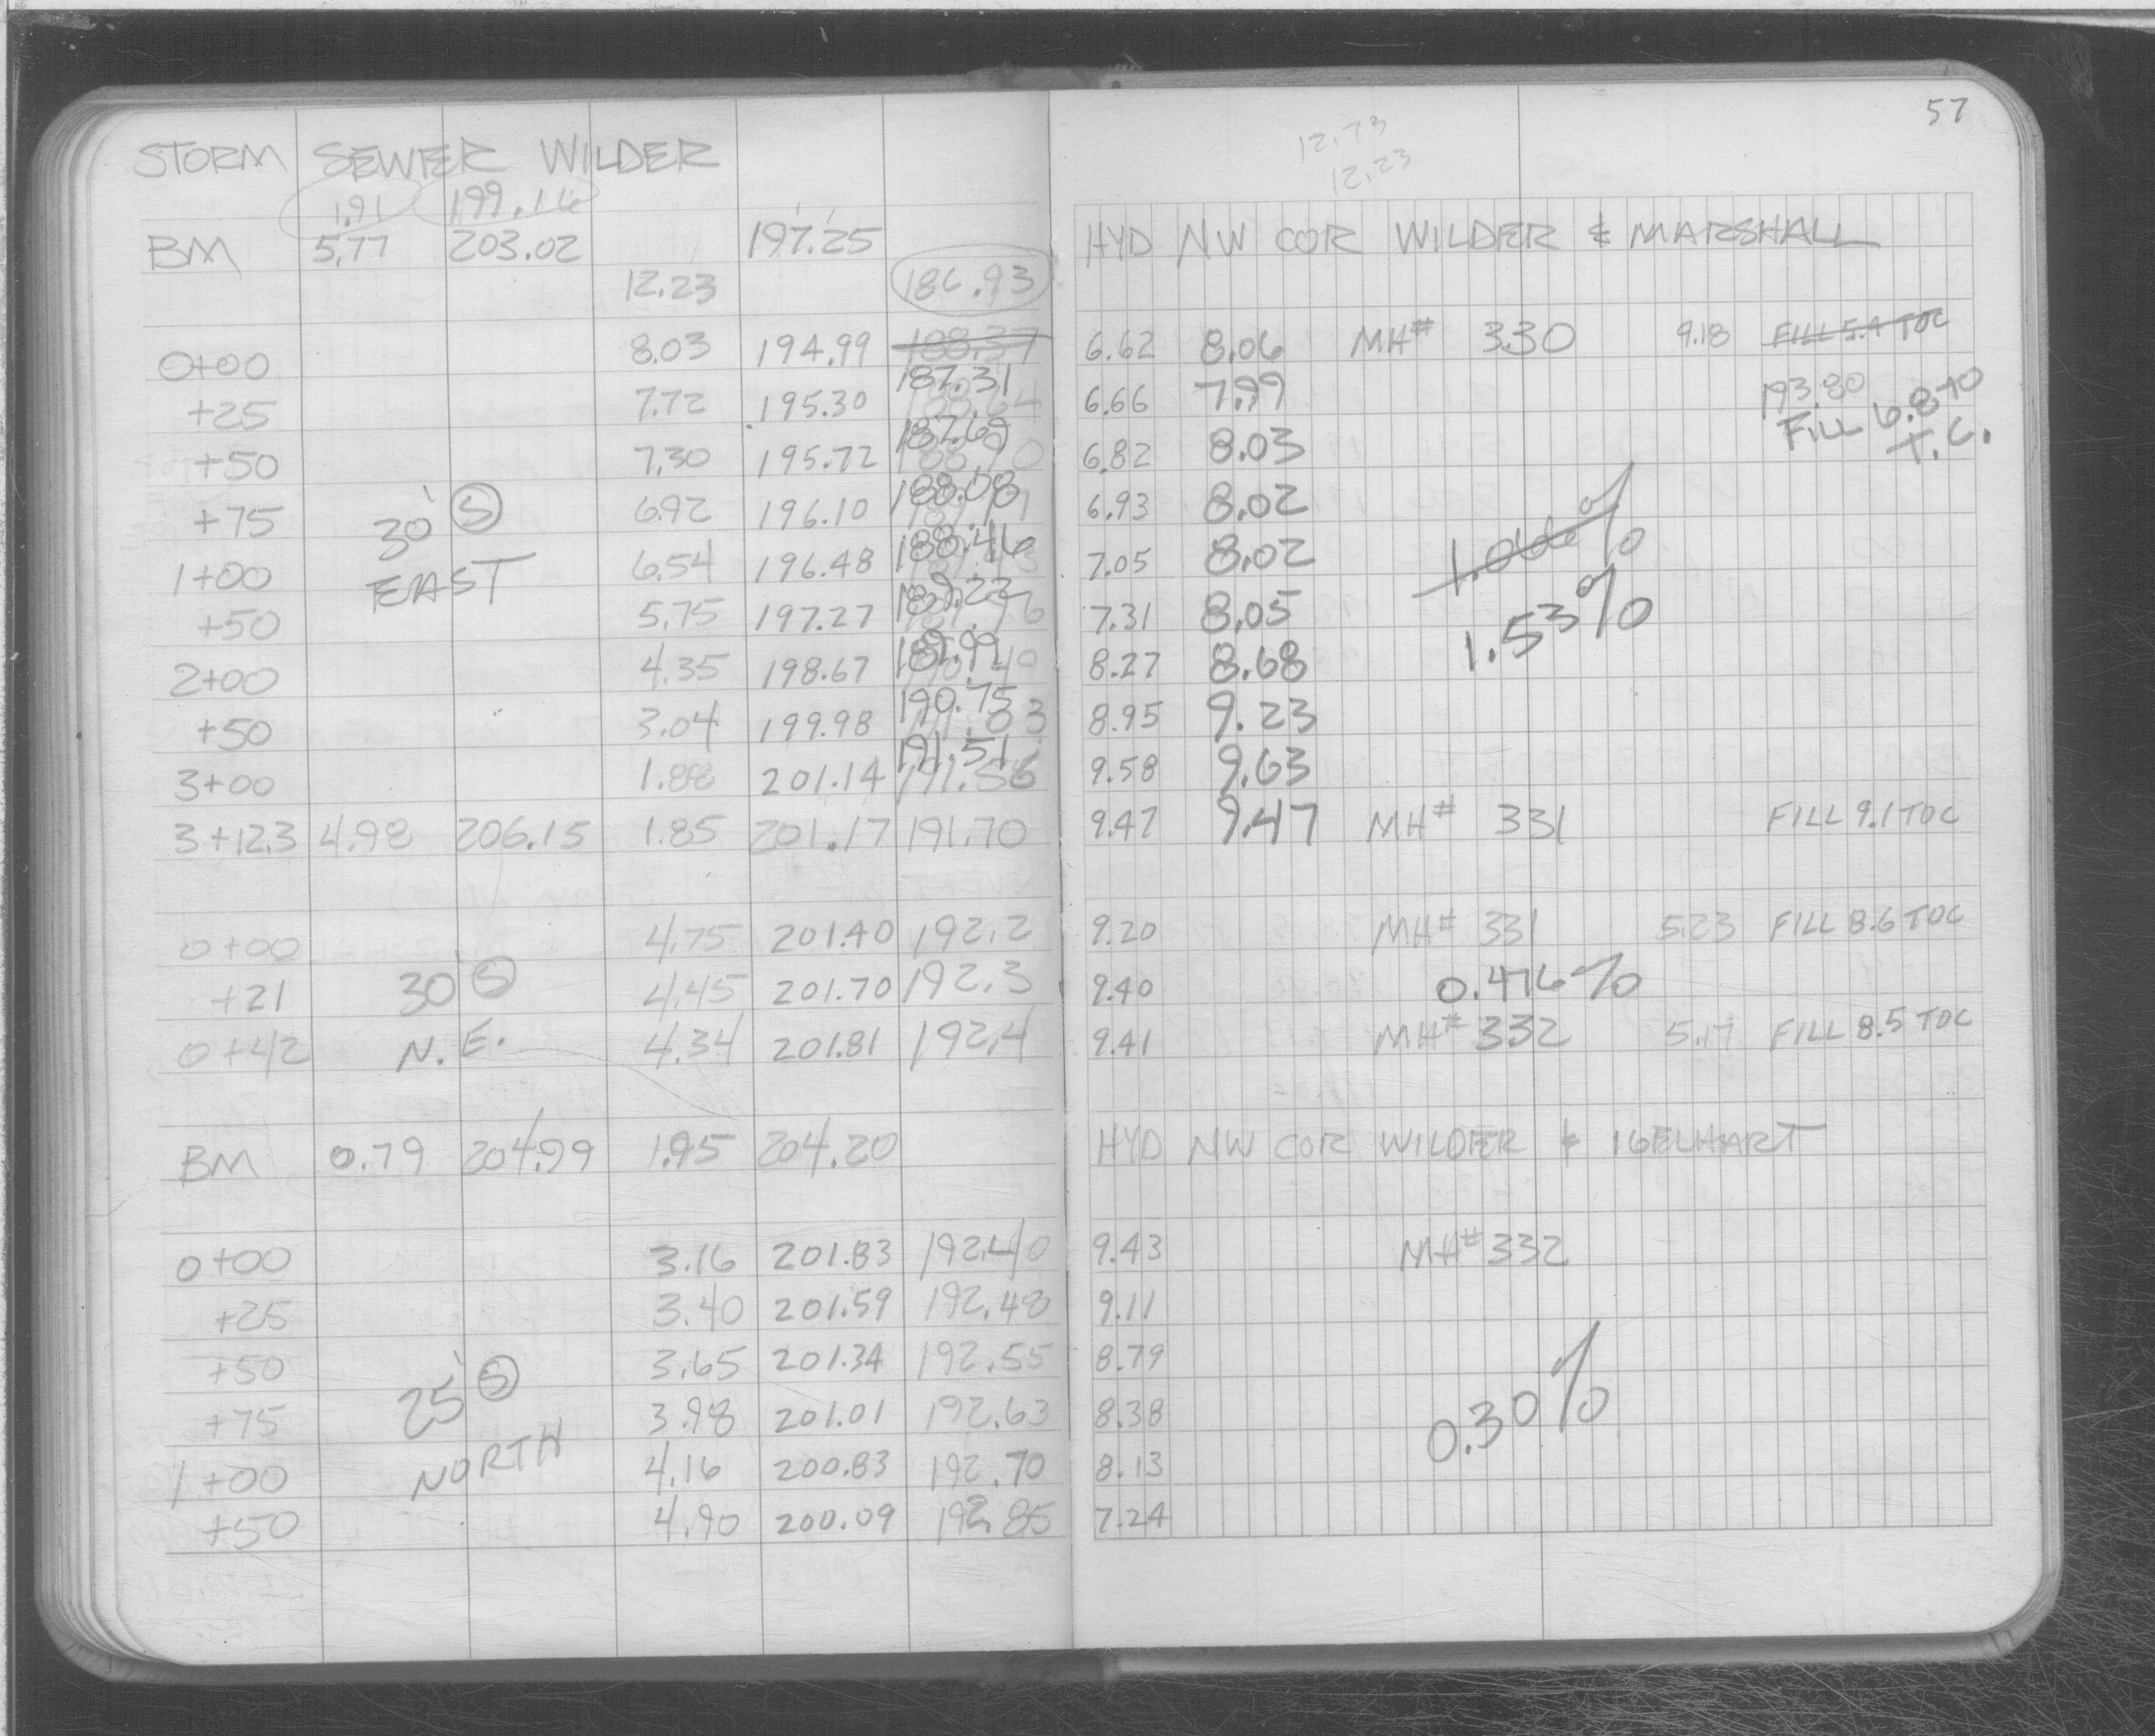 57
STORM SEWER WILDER 12.73
1.91 199.16 12.23
BM 5.77 203.02 197.25 HYD NW COR WILDER & MARSHALL
12.23 186.93
0+00 8.03 194.99 188.37 6.62 8.06 MH# 330 9.18 FILL 5.4 TOC
+25 7.72 195.30 187.31 6.66 7.99 193.80
+50 7.30 195.72 187.69 6.82 8.03 FILL 6.8 TO T.C.
+75 30' S 6.92 196.10 188.08 6.93 8.02
1+00 EAST 6.54 196.48 188.46 7.05 8.02 1.066%
+50 5.75 197.27 189.22 7.31 8.05 1.53%
2+00 4.35 198.67 189.99 8.27 8.68
+50 3.04 199.98 190.75 8.95 9.23
3+00 1.88 201.14 191.51 9.58 9.63
3+12.3 4.98 206.15 1.85 201.17 191.70 9.47 9.47 MH# 331 FILL 9.1 TOC
0+00 4.75 201.40 192.2 9.20 MH# 331 5.23 FILL 8.6 TOC
+21 30' S 4.45 201.70 192.3 9.40 0.476%
0+42 N.E. 4.34 201.81 192.4 9.41 MH# 332 5.17 FILL 8.5 TOC
BM 0.79 204.99 1.95 204.20 HYD NW COR WILDER & IGELHART
0+00 3.16 201.83 192.40 9.43 MH# 332
+25 3.40 201.59 192.48 9.11
+50 3.65 201.34 192.55 8.79
+75 25' S 3.98 201.01 192.63 8.38 0.30%
1+00 NORTH 4.16 200.83 192.70 8.13
+50 4.90 200.09 192.85 7.24